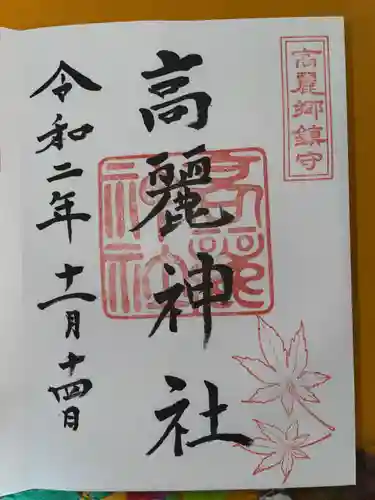 高麗郷鎮守
高麗神社
令和二年十一月十四日
高麗神社